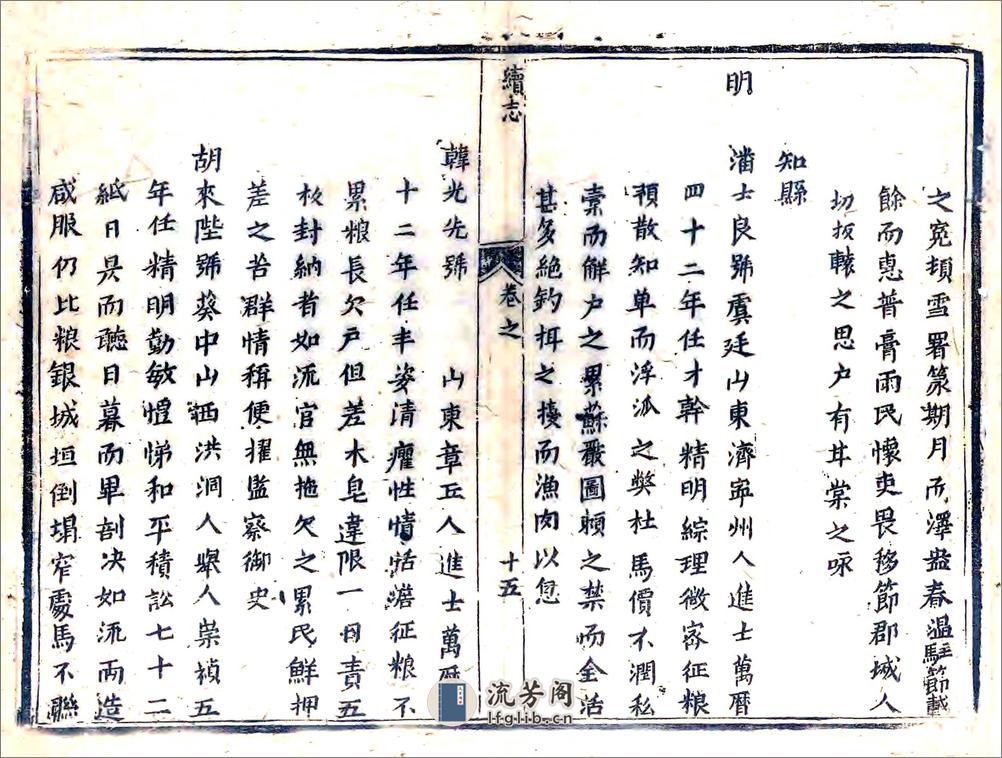 之寃頓雪署篆期月而澤並春温駐節載
餘而惠普膏雨民懷吏畏移節郡城人
切扳轅之思户有甘棠之咏
知縣
明
潘士良號虞廷山東濟寧州人進士萬曆
四十二年任才幹精明綜理微宻征粮
預散知单而浮派之獘杜馬價不潤私
槖而解户之累蘇嚴圖頼之禁而全活
甚多絶釣餌之擾而漁肉以息
續志
卷之
十五
韓光先號 山東章丘人進士萬曆
十二年任丰姿清癯性情恬澹征粮不
累粮長欠戸但差木皂違限一日責五
板封納者如流官無拖欠之累民鮮押
差之苦群情稱便擢监察御史
胡來陛號葵中山西洪洞人舉人崇禎五
年任精明勤敏愷悌和平積訟七十二
紙日昃而聽日暮而畢剖决如流两造
咸服仍比粮銀城垣倒塌窄處馬不聮
流芳阁
lfglib.cn